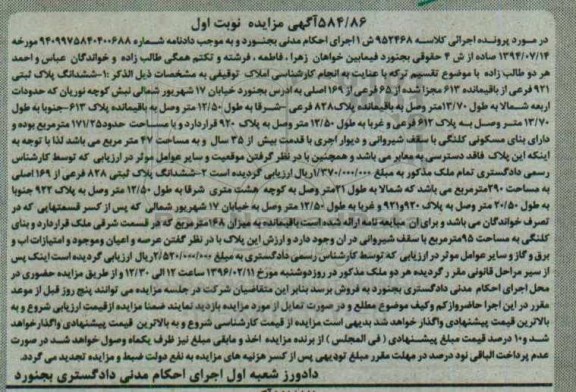 ۵۸۴/۸۶آگهی مزایده نوبت اول
در مورد پرونده اجرائی کلاسه ۹۵۲۴۶۸ ش ۱ اجرای احکام مدنی بجنورد و به موجب دادنامه شماره ۹۴۰۹۹۷۵۸۴۰۴۰۰۶۸۸ مورخه
۱۳۹۴/۰۷/۱۴ صادره از ش ۴ حقوقی بجنورد فیمابین خواهان زهرا ، فاطمه ، فرشته و تکتم همگی طالب زاده و خواندگان عباس و احمد
هر دو طالب زاده با موضوع تقسیم ترکه با عنایت به انجام کارشناسی املاک توقیفی به مشخصات ذیل الذکر :۱-ششدانگ پلاک ثبتی
۹۲۱ فرعی از باقیمانده ۶۱۳ مجزا شده از ۶۵ فرعی از ۱۶۹ اصلی به آدرس بجنورد خیابان ۱۷ شهریور شمالی نبش کوچه نوریان که حدودات
اربعه شمالا به طول ۱۳/۷۰متر وصل به باقیمانده پلاک ۸۲۸ فرعی -شرقا به طول ۱۲/۵۰ متر وصل به باقیمانده پلاک ۶۱۳-جنوبا به طول
۱۳/۷۰ متر وصل به پلاک ۶۱۲ فرعی و غربا به طول ۱۲/۵۰ متر وصل به پلاک ۹۲۰ قراردارد و با مساحت حدود ۱۷۱/۲۵مترمربع بوده و
دارای بنای مسکونی کلنگی با سقف شیروانی و دیوار اجری با قدمت بیش از ۳۵ سال و به مساحت ۴۷ متر مربع می باشد لذا با توجه به
اینکه این پلاک فاقد دسترسی به معابر می باشد و همچنین با در نظر گرفتن موقعیت و سایر عوامل موثر در ارزیابی که توسط کارشناس
رسمی دادگستری تمام ملک مذکور به مبلغ ۱/۳۷۰/۰۰۰/۰۰۰ریال ارزیابی گردیده است ۲-ششدانگ پلاک ثبتی ۸۲۸ فرعی از ۱۶۹ اصلی
به مساحت ۲۹۰مترمربع می باشد که شمالا به طول ۲۱متر وصل به کوچه هشت متری شرقا به طول ۱۲/۵۰ متر وصل به پلاک ۹۲۲ جنوبا
به طول ۲۰/۵۰ متر وصل به پلاک ۹۲۰و۹۲۱ و غربا به طول ۱۲/۵۰ متر وصل به خیابان ۱۷ شهریور شمالی که پس از کسر قسمتهایی که در
تصرف خواندگان می باشد و برای ان مبایعه نامه ارائه شده است باقیمانده به میزان ۱۴۸مترمربع که در قسمت شرقی ملک قراردارد و بنای
کلنگی به مساحت ۹۵مترمربع با سقف شیروانی در ان وجود دارد و ارزش این پلاک با در نظر گفتن عرصه و اعیان وموجود و امتیازات اب و
برق و گاز و سایر عوامل موثر در ارزیابی که توسط کارشناس رسمی دادگستری به مبلغ ۲/۵۲۰/۰۰۰/۰۰۰ریال ارزیابی گردیده است اینک پس
از سیر مراحل قانونی مقرر گردیده هر دو ملک مذکور در روز دوشنبه مورخ ۱۳۹۶/۰۲/۱۱ ساعت ۱۲ الی ۱۲/۳۰ و از طریق مزایده حضوری در
محل اجرای احکام مدنی دادگستری بجنورد به فروش برسد بنابر این متقاضیان شرکت در جلسه مزایده می توانند پنج روز قبل از موعد
مقرر در این اجرا حاضرواز کم وکیف موضوع مطلع و در صورت تمایل از مورد مزایده بازدید نمایند ضمنا مزایده ازقیمت ارزیابی شروع و به
بالاترین قیمت پیشنهادی واگذار خواهد شد بدیهی است مزایده از قیمت کارشناسی شروع و به بالاترین قیمت پیشنهادی واگذار خواهد
شد و۱۰ درصد قیمت مبلغ پیشنهادی ( فی المجلس ) از برنده مزایده اخذ و مابقی مبلغ نیز ظرف یکماه وصول خواهد شد در صورت
عدم پرداخت الباقی نود درصد در مهلت مقرر مبلغ تودیهی پس از کسر هزینه های مزایده به نفع دولت ضبط و مزایده تجدید می گردد.
دادورز شعبه اول اجرای احکام مدنی دادگستری بجنورد